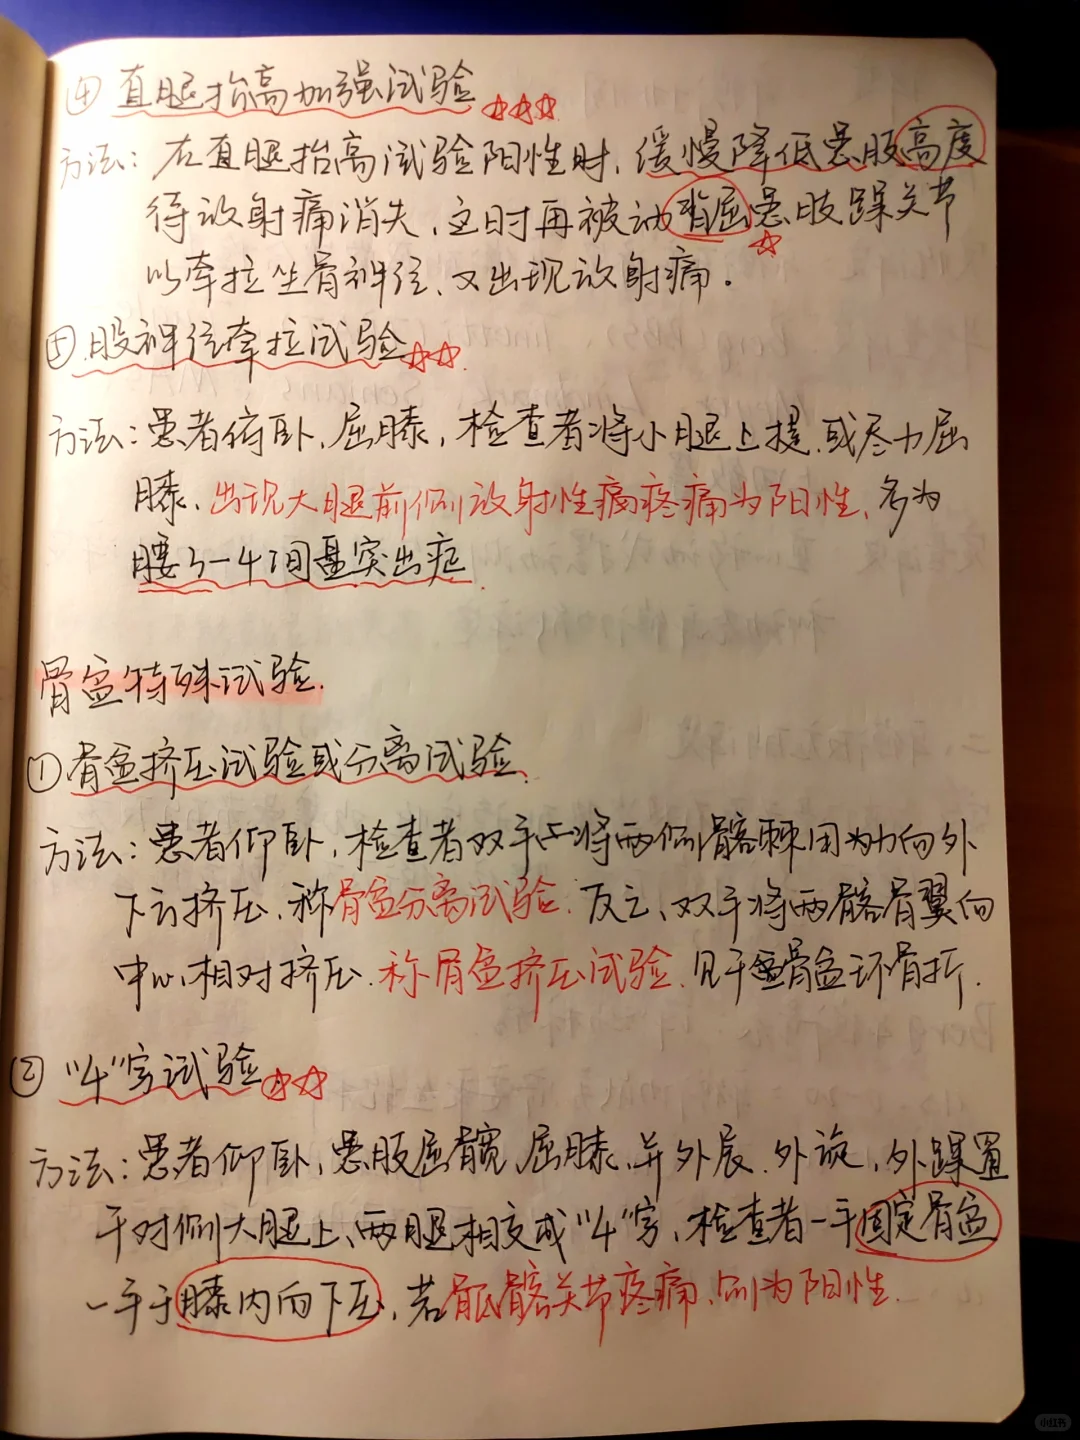 ④ 直腿抬高加强试验 ☆☆☆
方法：在直腿抬高试验阳性时，缓慢降低患肢高度
待放射痛消失，这时再被动背屈患肢踝关节
以牵拉坐骨神经，又出现放射痛。
⑤ 股神经牵拉试验 ☆☆
方法：患者俯卧，屈膝，检查者将小腿上提，或尽力屈
膝，出现大腿前侧放射性疼痛为阳性，多为
腰3-4间盘突出症
骨盆特殊试验.
① 骨盆挤压试验或分离试验.
方法：患者仰卧，检查者双手将两侧髂棘用力向外
下方挤压，称骨盆分离试验. 反之，双手将两髂骨翼向
中心相对挤压. 称骨盆挤压试验. 见于骨盆环骨折.
② “4”字试验 ☆☆
方法：患者仰卧，患肢屈髋 屈膝，并外展.外旋，外踝置
于对侧大腿上，两腿相交成“4”字，检查者一手固定骨盆
一手于膝内向下压，若骶髂关节疼痛，则为阳性.
小红书